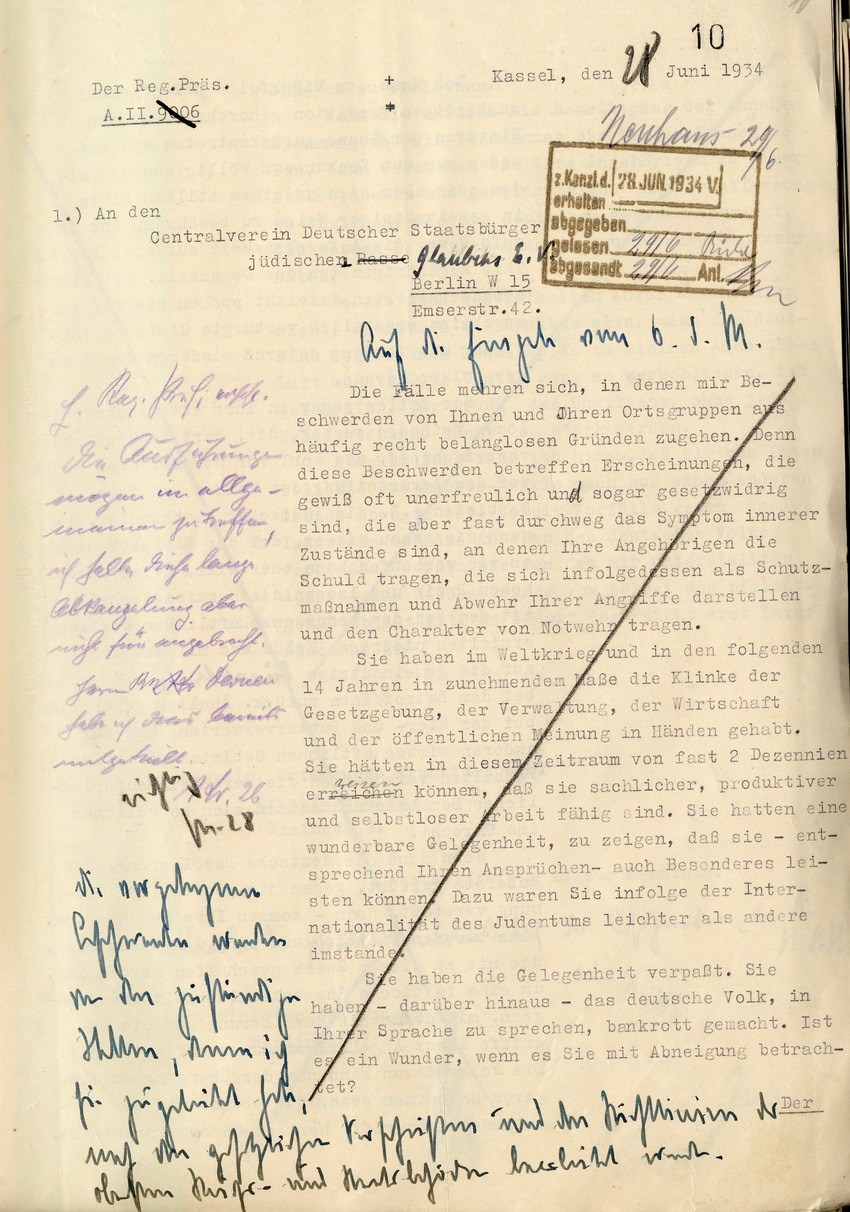 10
Der Reg.Präs.
A.II.9006
Kassel, den 28 Juni 1934
Neuhaus 29/6.
z.Kanzl.d. 28. JUN. 1934 V.
erhalten
abgegeben
gelesen 29/6
abgesandt 29/6 Anl.
1.) An den
Centralverein Deutscher Staatsbürger
jüdischen Rasse Glaubens E.V.
Berlin W 15
Emserstr.42.
Auf die Eingabe vom 6. d. M.
Die Fälle mehren sich, in denen mir Be-
schwerden von Ihnen und Ihren Ortsgruppen aus
häufig recht belanglosen Gründen zugehen. Denn
diese Beschwerden betreffen Erscheinungen, die
gewiß oft unerfreulich und sogar gesetzwidrig
sind, die aber fast durchweg das Symptom innerer
Zustände sind, an denen Ihre Angehörigen die
Schuld tragen, die sich infolgedessen als Schutz-
maßnahmen und Abwehr Ihrer Angriffe darstellen
und den Charakter von Notwehr tragen.
Sie haben im Weltkrieg und in den folgenden
14 Jahren in zunehmendem Maße die Klinke der
Gesetzgebung, der Verwaltung, der Wirtschaft
und der öffentlichen Meinung in Händen gehabt.
Sie hätten in diesem Zeitraum von fast 2 Dezennien
weisen
erreichen können, daß sie sachlicher, produktiver
und selbstloser Arbeit fähig sind. Sie hatten eine
wunderbare Gelegenheit, zu zeigen, daß sie - ent-
sprechend Ihren Ansprüchen- auch Besonderes lei-
sten können. Dazu waren Sie infolge der Inter-
nationalität des Judentums leichter als andere
imstande.
Sie haben die Gelegenheit verpaßt. Sie
haben - darüber hinaus - das deutsche Volk, in
Ihrer Sprache zu sprechen, bankrott gemacht. Ist
es ein Wunder, wenn es Sie mit Abneigung betrach-
tet?
Der
H. Reg. Präs.
Die Ausführungen
mögen im allge-
meinen zutreffen,
ich halte diese lange
Abkanzelung aber
nicht für angebracht.
Herrn
habe ich dies bereits
mitgeteilt.
26
richtig
28
Die vorgetragenen
Beschwerden werden
von den zuständigen
Stellen, denen ich
sie zugeleitet habe,
nach den gesetzlichen Vorschriften und den Richtlinien der
obersten Reichs- und Staatsbehörden bearbeitet werden.